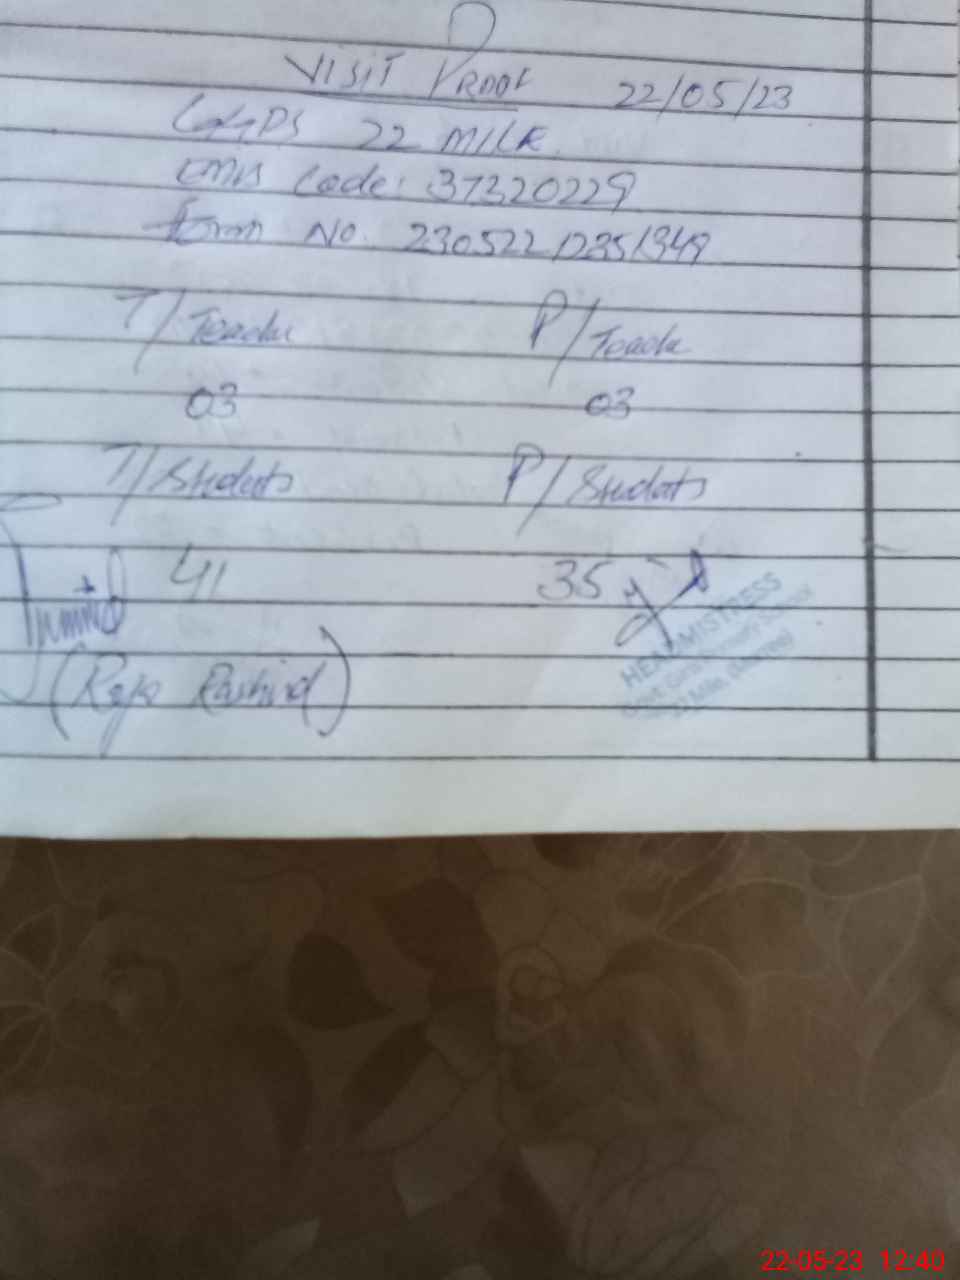 VISIT PROOF 22/05/23
GGPS 22 MILE
EMIS Code: 37320229
Form No. 230522
T/Teache P/Teache
03 03
T/Students P/Students
41 35
HEADMISTRESS
Govt. Girls Primary School
22 Mile, (Murree)
(Raja Rashid)
22-05-23 12:40